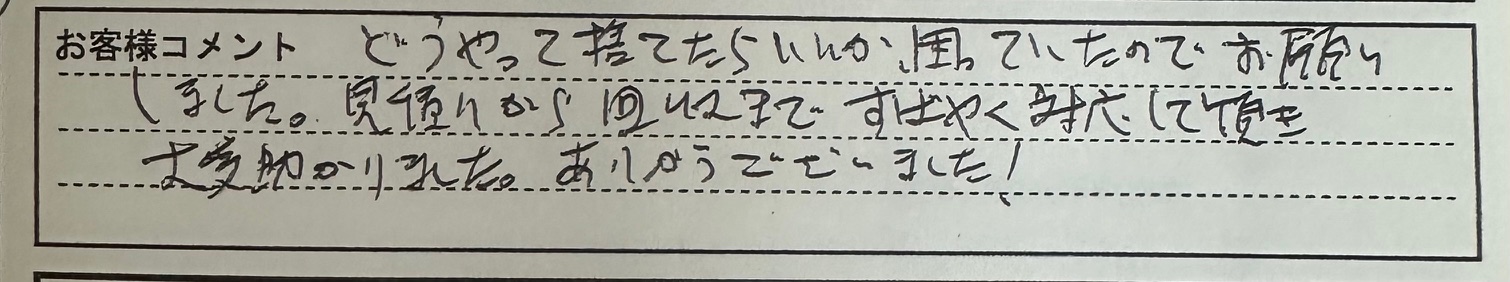 お客様コメント どうやって捨てたらいいか、困っていたのでお願い
しました。見積りから回収まですばやく対応して頂き
大変助かりました。ありがとうございました!